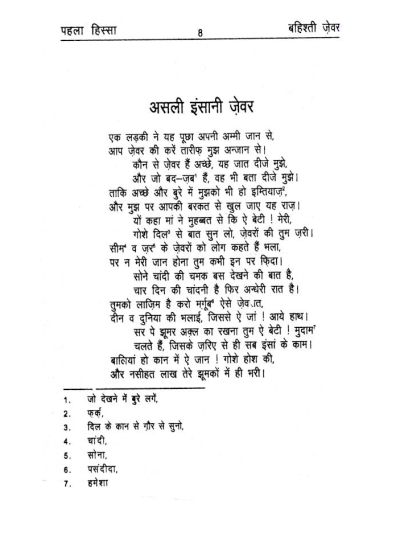 पहला हिस्सा 8 बहिश्ती ज़ेवर
असली इंसानी ज़ेवर
एक लड़की ने यह पूछा अपनी अम्मी जान से,
आप ज़ेवर की करें तारीफ़ मुझ अन्जान से।
कौन से ज़ेवर हैं अच्छे, यह जात दीजे मुझे,
और जो बद–ज़ब¹ हैं, वह भी बता दीजे मुझे।
ताकि अच्छे और बुरे में मुझको भी हो इम्तियाज़²,
और मुझ पर आपकी बरकत से खुल जाए यह राज़।
यों कहा मां ने मुहब्बत से कि ऐ बेटी ! मेरी,
गोशे दिल³ से बात सुन लो, ज़ेवरों की तुम ज़री।
सीम⁴ व ज़र⁵ के ज़ेवरों को लोग कहते हैं भला,
पर न मेरी जान होना तुम कभी इन पर फ़िदा।
सोने चांदी की चमक बस देखने की बात है,
चार दिन की चांदनी है फिर अन्धेरी रात है।
तुमको लाज़िम है करो मर्ग़ूब⁶ ऐसे ज़ेव.ात,
दीन व दुनिया की भलाई, जिससे ऐ जां ! आये हाथ।
सर पे झूमर अक़्ल का रखना तुम ऐ बेटी ! मुदाम⁷
चलते हैं, जिसके ज़रिए से ही सब इंसां के काम।
बालियां हो कान में ऐ जान ! गोशे होश की,
और नसीहत लाख तेरे झूमकों में ही भरी।
1. जो देखने में बुरे लगें,
2. फर्क़,
3. दिल के कान से ग़ौर से सुनो,
4. चांदी,
5. सोना,
6. पसंदीदा,
7. हमेशा